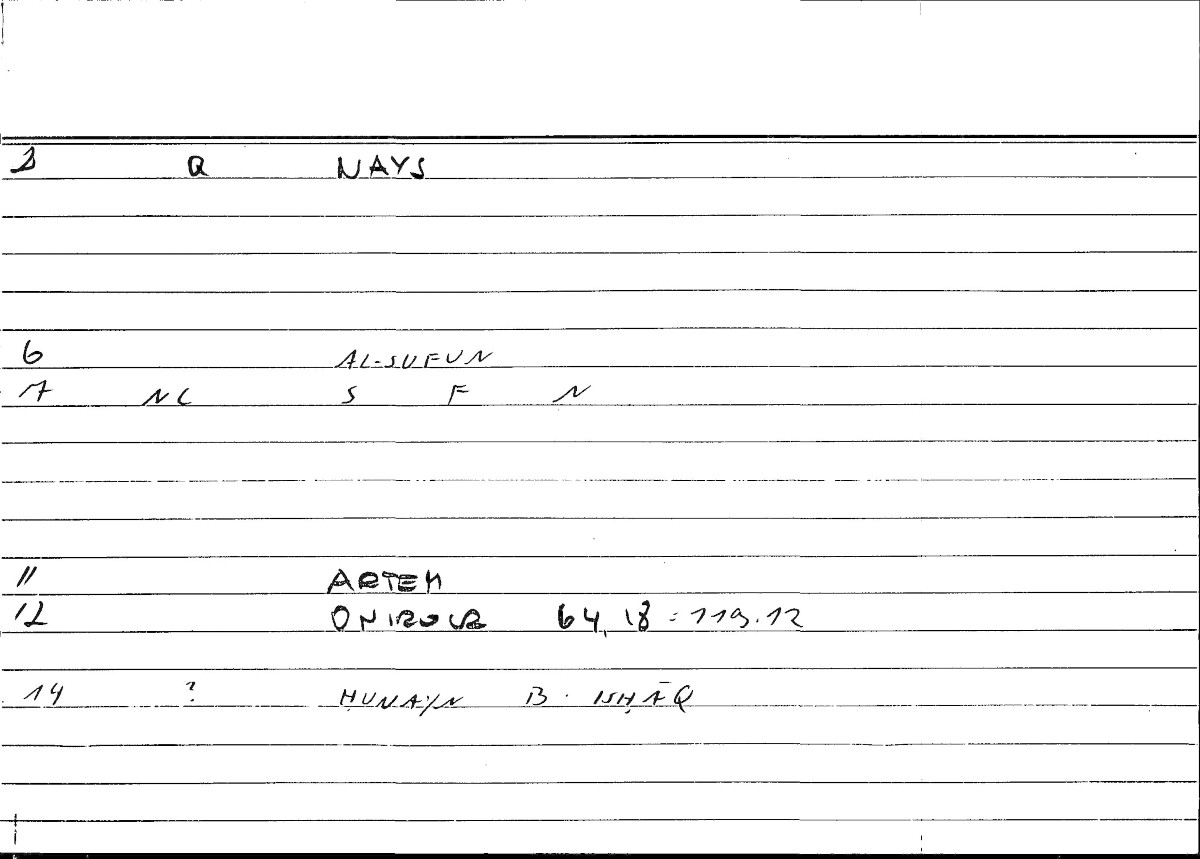 1 Q NAYS
6 AL-SUFUN
7 NC S F N
11 ARTEM
12 ONIROCR 64,18 = 119.12
14 ? ḤUNAYN B. ISḤĀQ